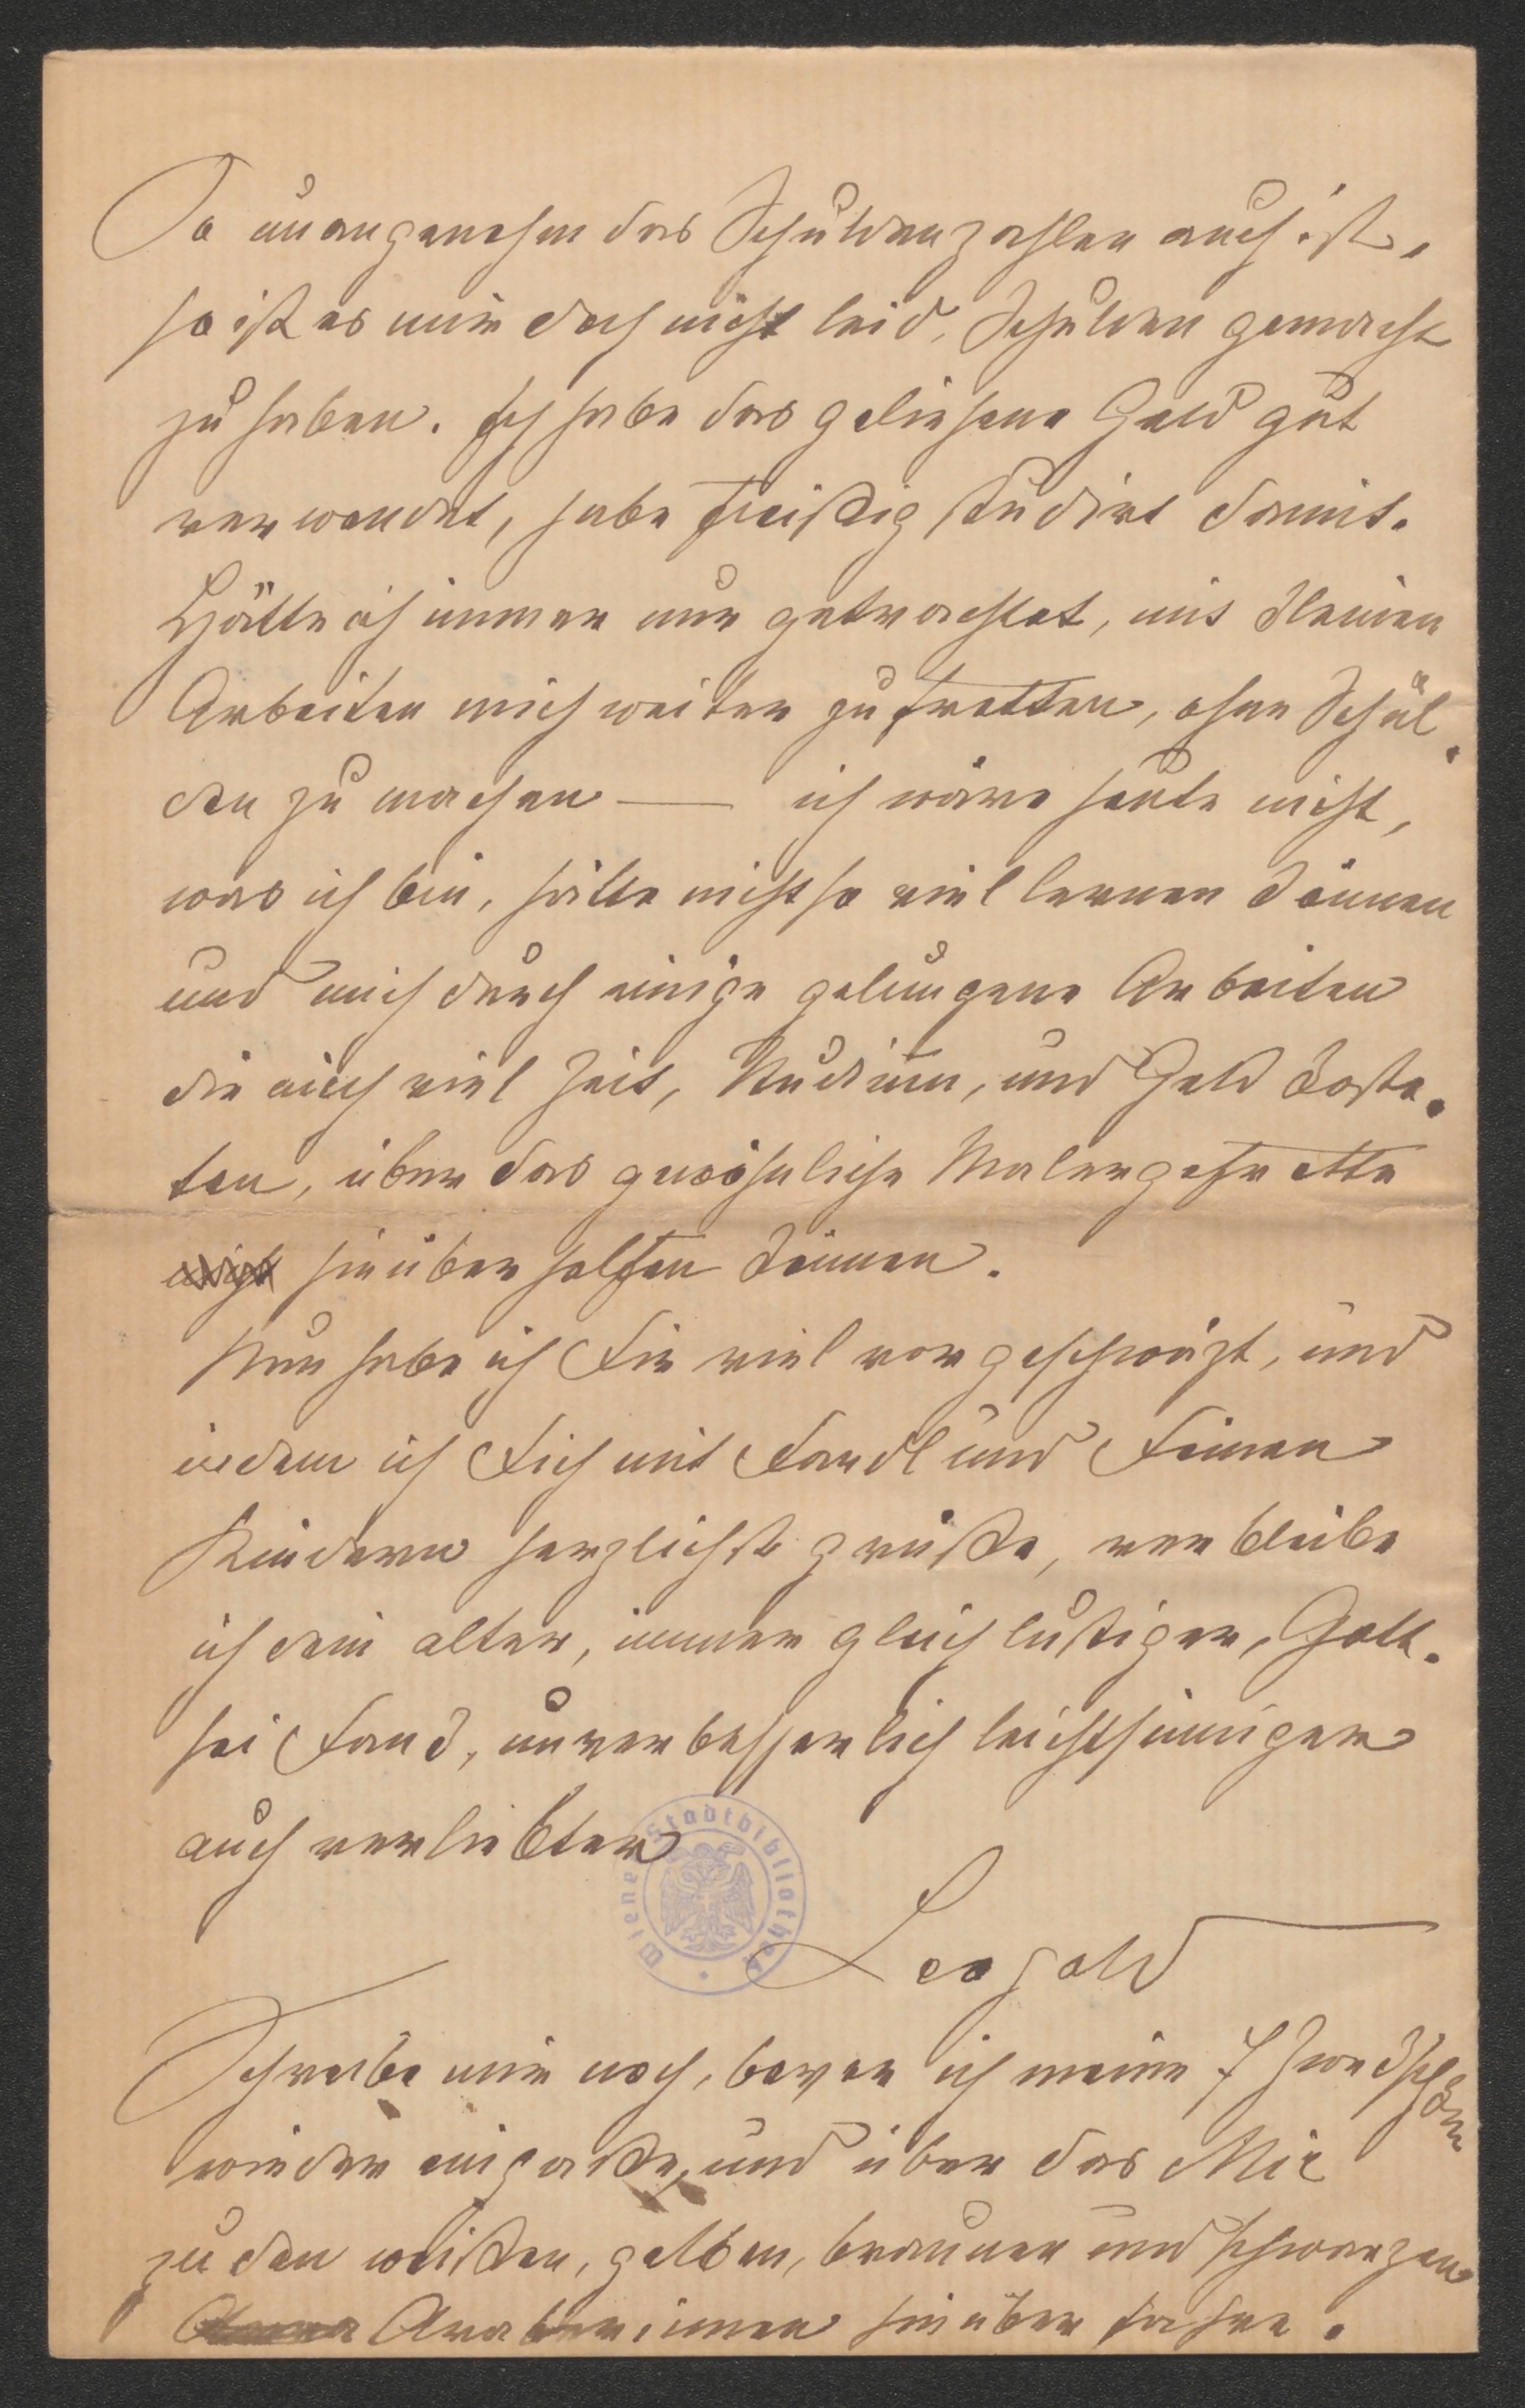 So unangenehm das Schuldenzahlen auch ist,
so ist es mir doch nicht leid, Schulden gemacht
zu haben. Ich habe das geliehene Geld gut
verwendet, habe fleißig studirt damit.
Hätte ich immer nur getrachtet, mit kleinen
Arbeiten mich weiter zu fretten, ohne Schul-
den zu machen — ich wäre heute nicht,
was ich bin, hätte nicht so viel lernen können
und mich durch einige gelungene Arbeiten
die auch viel Zeit, Studium, und Geld koste-
ten, über das gewöhnliche Malergefrette
hinüber helfen können.
Nun habe ich Dir viel vorgeschwäzt, und
indem ich Dich mit Fandl und Deinen
Kindern herzlichst grüße, verbleibe
ich dein alter, immer gleich lustiger, Gott-
sei Dank, unverbesserlich leichtsinniger
auch verliebter
Wiener Stadtbibliothek
Leopold
Schreibe mir noch, bevor ich meine 7 Zwedschken
wieder einpacke, und über das Meer
zu den weißen, gelben, braunen und schwarzen
Araberinnen hinüber fahre.